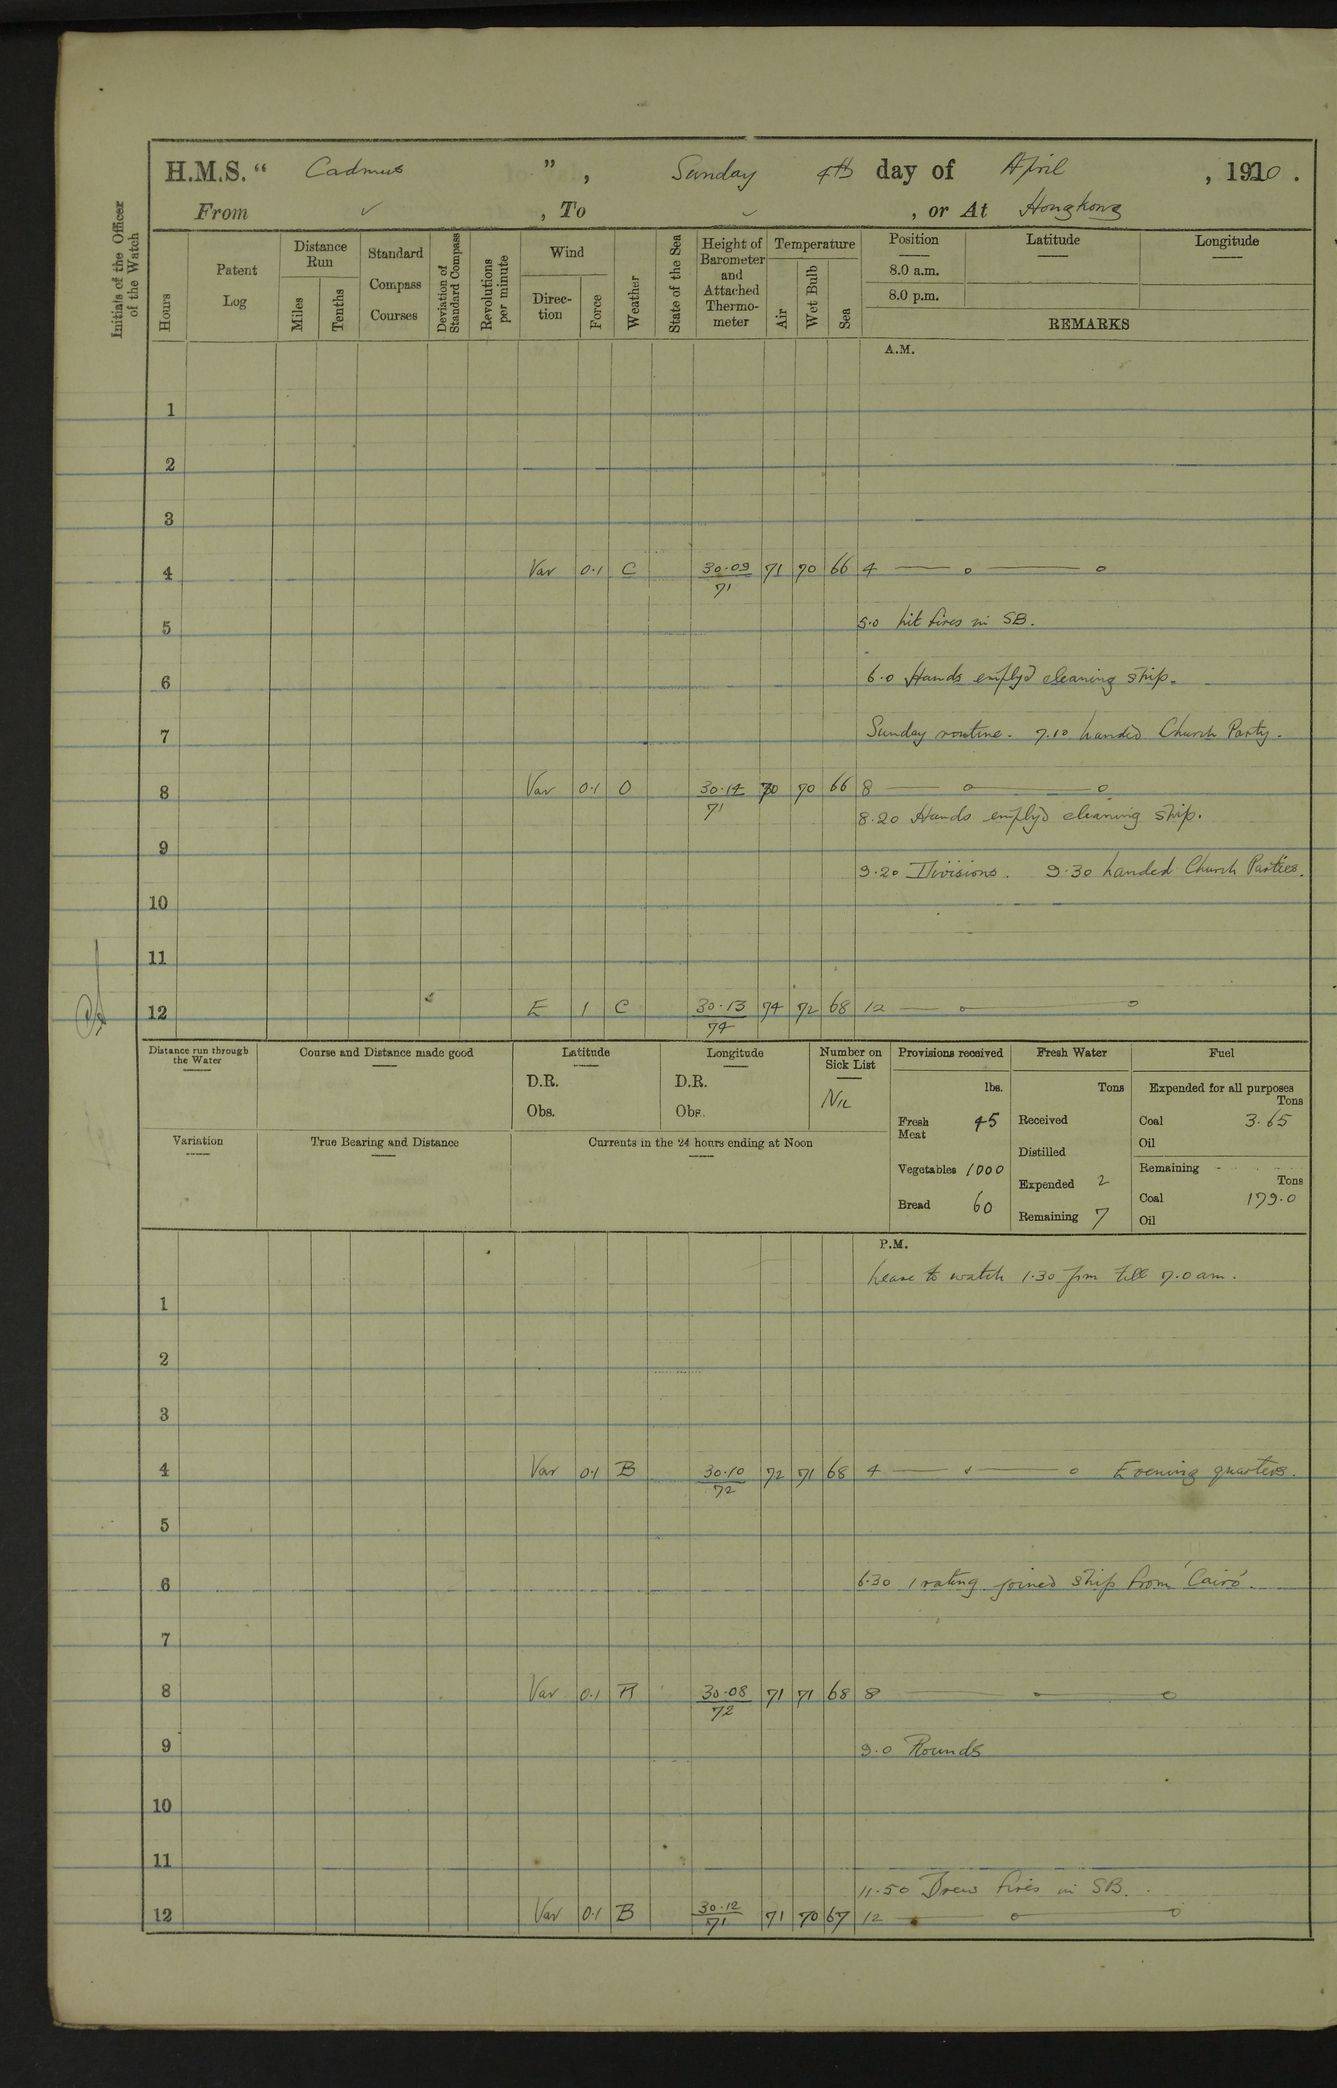 H.M.S. “ Cadmus ” , Sunday 4th day of April , 1920 .
From ✓ , To ✓ , or At Hongkong
Initials of the Officer of the Watch
Hours
Patent Log
Distance Run
Miles
Tenths
Standard Compass Courses
Deviation of Standard Compass
Revolutions per minute
Wind
Direc-tion
Force
Weather
State of the Sea
Height of Barometer and Attached Thermo-meter
Temperature
Air
Wet Bulb
Sea
Position Latitude Longitude
8.0 a.m.
8.0 p.m.
REMARKS
A.M.
1
2
3
4 Var 0.1 C 30.09 71 70 66 4 — o — o
71
5.0 Lit fires in SB.
5
6.0 Hands emply'd cleaning ship.
6
Sunday routine. 7.10 landed Church Party.
7
8 Var 0.1 O 30.14 70 70 66 8 — o — o
71
8.20 Hands emply'd cleaning ship.
9
9.20 Divisions. 9.30 landed Church Parties.
10
11
12 E 1 C 30.13 74 72 68 12 — o — o
74
Distance run through the Water
Course and Distance made good
Latitude
D.R.
Obs.
Longitude
D.R.
Obs.
Number on Sick List
Nil
Provisions received
lbs.
Fresh Meat 45
Vegetables 1000
Bread 60
Fresh Water
Tons
Received
Distilled
Expended 2
Remaining 7
Fuel
Expended for all purposes
Tons
Coal 3.65
Oil
Remaining
Tons
Coal 179.0
Oil
Variation
True Bearing and Distance
Currents in the 24 hours ending at Noon
P.M.
Leave to watch 1.30 pm till 7.0 am.
1
2
3
4 Var 0.1 B 30.10 72 71 68 4 — o — o Evening quarters.
72
5
6 6.30 1 rating joined ship from 'Cairo'.
7
8 Var 0.1 B 30.08 71 71 68 8 — o — o
72
9 9.0 Rounds
10
11
11.50 Drew fires in SB.
12 Var 0.1 B 30.12 71 70 67 12 — o — o
71